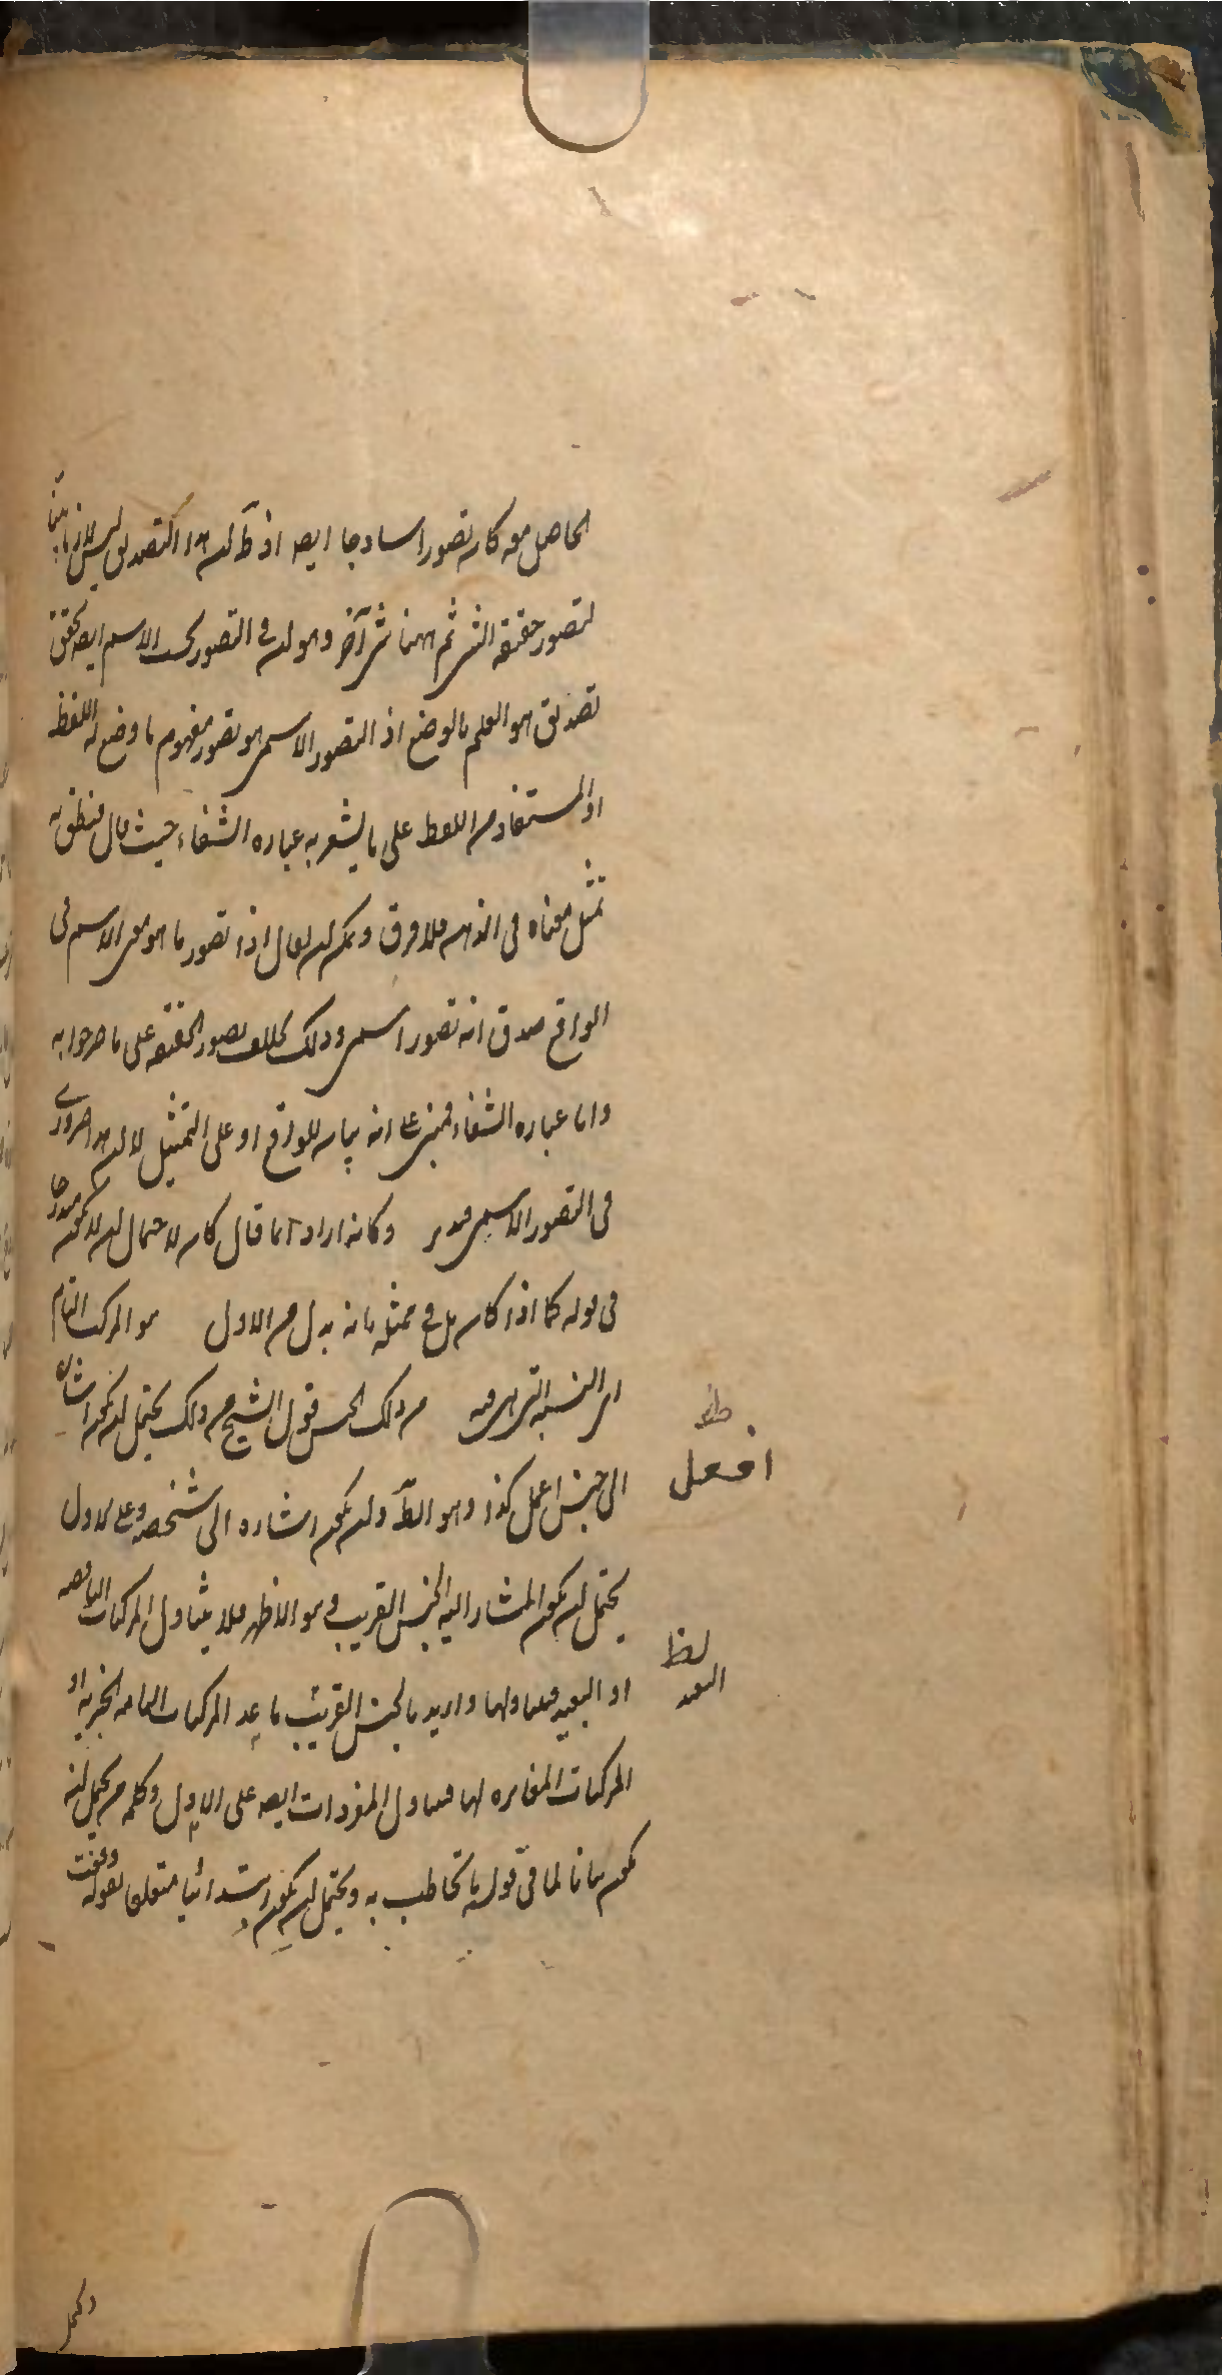 الحاصل معه كان تصورا ساذجا ايضا اذ ظ ان هذا التصديق ليس لازما بينا
لتصور حقيقة الشئ ثم ههنا شئ آخر وهو ان فى التصور بحسب الاسم ايضا يتحقق
تصديق هو العلم بالوضع اذ التصور الاسمى هو تصور مفهوم ما وضع له اللفظ
او المستفاد من اللفظ على ما يشعر به عبارة الشفاء حيث قال فينطق به
تمثل معناه فى الذهن فلا فرق ويمكن ان يقال اذا تصور ما هو معنى الاسم فى
الواقع صدق انه تصور اسمى وذلك بخلاف تصور الحقيقة على ما صرحوا به
واما عبارة الشفاء فمبنى على انه بيان للواقع او على التمثيل لا ان هذا ضرورى
فى التصور الاسمى فتدبر وكانه اراد انما قال كان لاحتمال ان لا يكون مندرجا
فى قوله كما اذا كان بل فى مثله بانه بدل من الاول هو المركب التام
اى النسبة التى هى فيه من ذلك الجنس قول الشيخ من ذلك يحتمل ان يكون اشارة
الى جنس اعمل كذا وهو الظ وان يكون اشارة الى شخصه وعلى الاول
افعل ظ
يحتمل ان يكون المشار اليه الجنس القريب وهو الاظهر فلا يتناول المركبات الناقصة
او البعيد فيتناولها واريد بالجنس القريب ما عد المركبات التامة الخبرية او
لفظ البعيد
المركبات المغايرة لها فيتناول المفردات ايضا على الاول وكلمة من يحتمل ان
يكون بيانا لما فى قوله ما تخاطب به ويحتمل ان يكون ابتدائيا متعلقا بقوله
ويحتمل